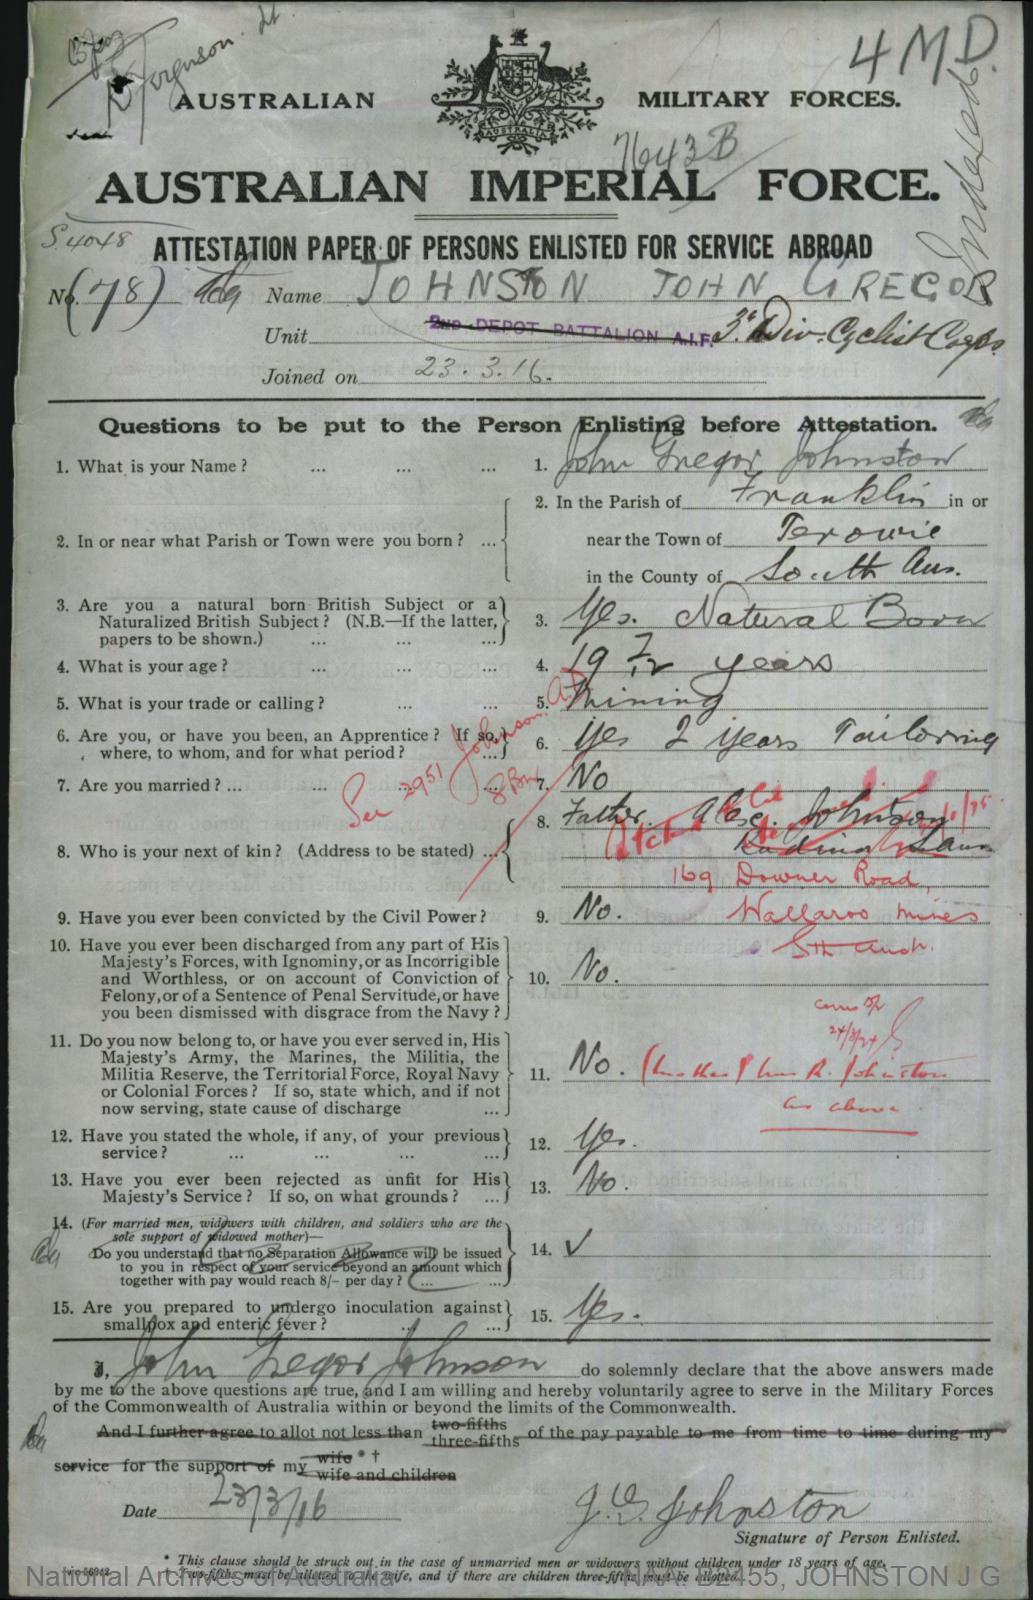 Ferguson. Lt
4 M D.
AUSTRALIAN MILITARY FORCES.
AUSTRALIA
Indexed
7643B
AUSTRALIAN IMPERIAL FORCE.
S 4048
ATTESTATION PAPER OF PERSONS ENLISTED FOR SERVICE ABROAD
No. (78) Name JOHNSTON JOHN GREGOR
Unit 2ND DEPOT BATTALION A.I.F. 3rd Div. Cyclist Corps.
Joined on 23.3.16.
Questions to be put to the Person Enlisting before Attestation.
1. What is your Name? ... ... ... 1. John Gregor Johnston
2. In or near what Parish or Town were you born? ... 2. In the Parish of Franklin in or
near the Town of Terowie
in the County of South Aus.
3. Are you a natural born British Subject or a
Naturalized British Subject? (N.B.—If the latter,
papers to be shown.) ... ... ... 3. Yes. Natural Born
4. What is your age? ... ... ... 4. 19 7/12 years
5. What is your trade or calling? ... ... 5. Mining
6. Are you, or have you been, an Apprentice? If so,
where, to whom, and for what period? 6. Yes 2 years Tailoring
See 2951 Johnson. A.
7. Are you married? ... ... ... ... 7. No
8. Who is your next of kin? (Address to be stated) ... 8. Father. Alex. Johnston
169 Downer Road,
Wallaroo Mines
Sth Aust.
9. Have you ever been convicted by the Civil Power? 9. No.
10. Have you ever been discharged from any part of His
Majesty's Forces, with Ignominy, or as Incorrigible
and Worthless, or on account of Conviction of
Felony, or of a Sentence of Penal Servitude, or have
you been dismissed with disgrace from the Navy? 10. No.
24/3/24
11. Do you now belong to, or have you ever served in, His
Majesty's Army, the Marines, the Militia, the
Militia Reserve, the Territorial Force, Royal Navy
or Colonial Forces? If so, state which, and if not
now serving, state cause of discharge ... 11. No. (Mother) Mrs R. Johnston
as above
12. Have you stated the whole, if any, of your previous
service? ... ... ... ... 12. Yes.
13. Have you ever been rejected as unfit for His
Majesty's Service? If so, on what grounds? ... 13. No.
14. (For married men, widowers with children, and soldiers who are the
sole support of widowed mother)—
Do you understand that no Separation Allowance will be issued
to you in respect of your service beyond an amount which
together with pay would reach 8/- per day? ... ... 14. ✓
15. Are you prepared to undergo inoculation against
smallpox and enteric fever? ... ... 15. Yes.
I, John Gregor Johnson do solemnly declare that the above answers made
by me to the above questions are true, and I am willing and hereby voluntarily agree to serve in the Military Forces
of the Commonwealth of Australia within or beyond the limits of the Commonwealth.
And I further agree to allot not less than two-fifths three-fifths of the pay payable to me from time to time during my
service for the support of my wife * † wife and children
Date 23/3/16
J. G. Johnston
Signature of Person Enlisted.
* This clause should be struck out in the case of unmarried men or widowers without children under 18 years of age.
† Two-fifths must be allotted to the wife, and if there are children three-fifths must be allotted.
National Archives of Australia NAA: B2455, JOHNSTON J G